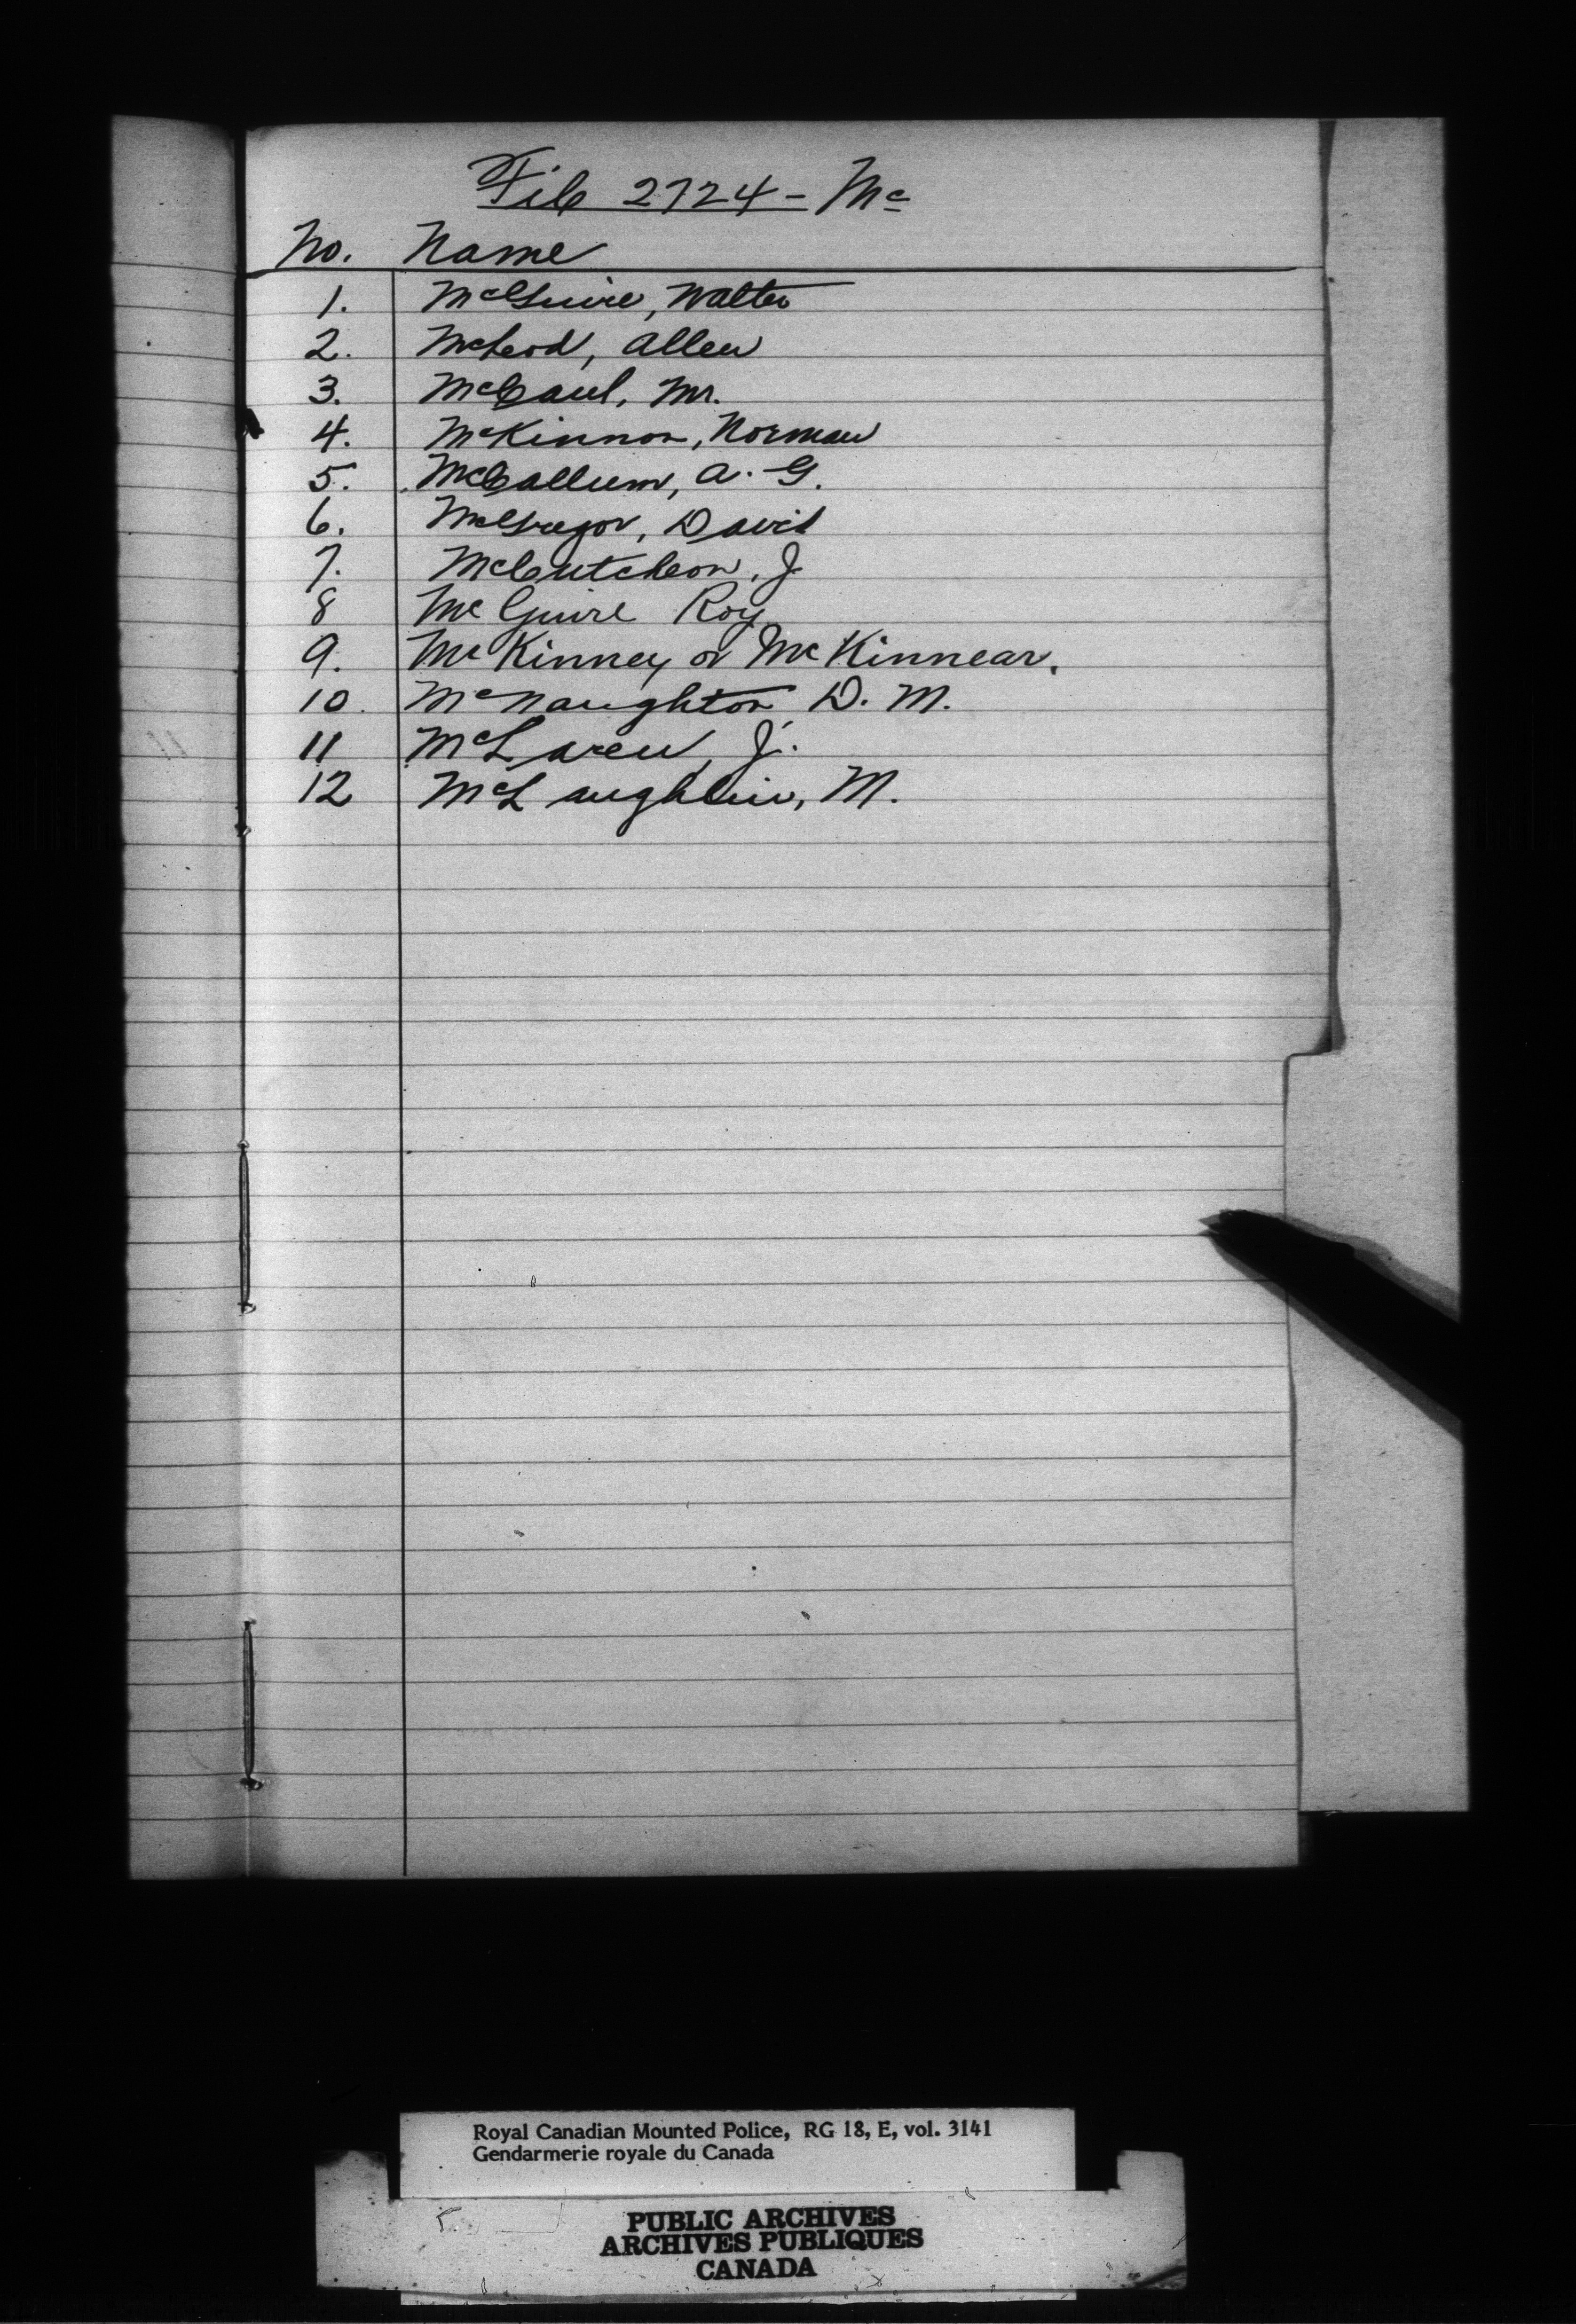 File 2724 - Mc
No. Name
1. McGuire, Walter
2. McLeod, Allen
3. McCaul, Mr.
4. McKinnon, Norman
5. McCallum, A. G.
6. McGregor, David
7. McCutcheon, J.
8 McGuire Roy
9. McKinney or McKinnear.
10. McNaughton D. M.
11 McLaren, J.
12 McLaughlin, M.
Royal Canadian Mounted Police, RG 18, E, vol. 3141
Gendarmerie royale du Canada
PUBLIC ARCHIVES
ARCHIVES PUBLIQUES
CANADA